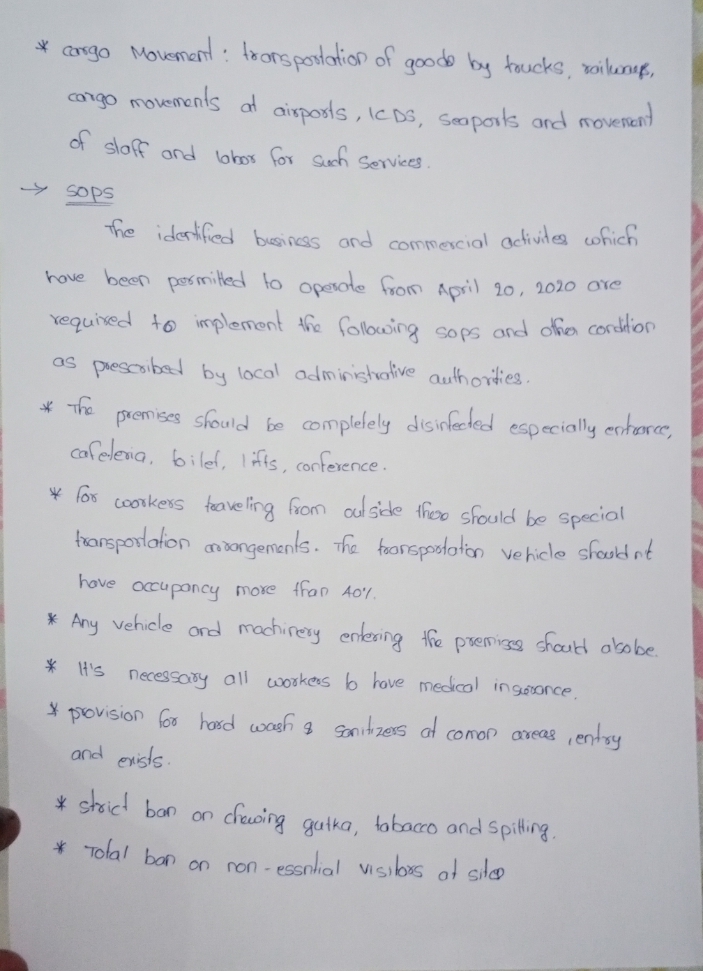 * cargo Movement : transportation of goods by trucks, railways,
cargo movements at airports, ICDS, seaports and movement
of staff and labor for such services.
→ SOPS
The identified business and commercial activites which
have been permitted to operate from April 20, 2020 are
required to implement the following sops and other condition
as prescribed by local administrative authorities.
* The premises should be completely disinfected especially entrance,
cafeteria, toilet, lifts, conference.
* for workers traveling from outside there should be special
transportation arrangements. The transportation vehicle shouldnt
have occupancy more than 40%.
* Any vehicle and machinery entering the premises should also be.
* It's necessary all workers to have medical insurance.
* provision for hand wash & sanitizers at comon areas, entry
and exists.
* strict ban on chewing gutka, tabacco and spitting.
* Total ban on non-essntial visitors at sites